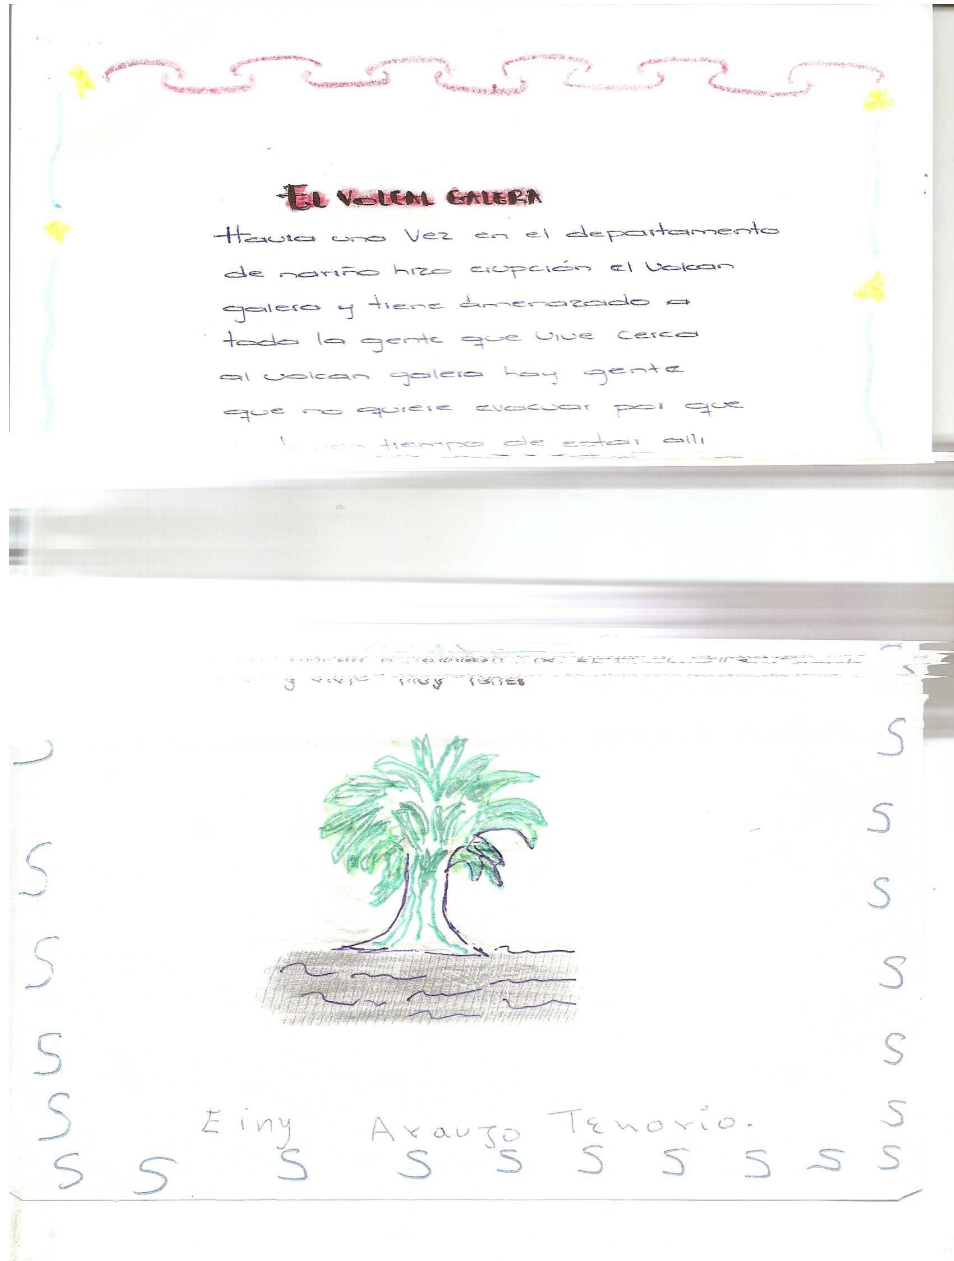 EL VOLCAL GALERA
Havia una Vez en el departamento
de nariño hizo erupción el Volcan
galera y tiene amenazado a
toda la gente que vive cerca
al volcan galera hay gente
que no quiere evacuar por que
tiempo de estar alli
y vivir muy felices
Einy Araujo Tenorio.
S
S
S
S
S
S
S
S
S
S
S
S S S S S S S S S S